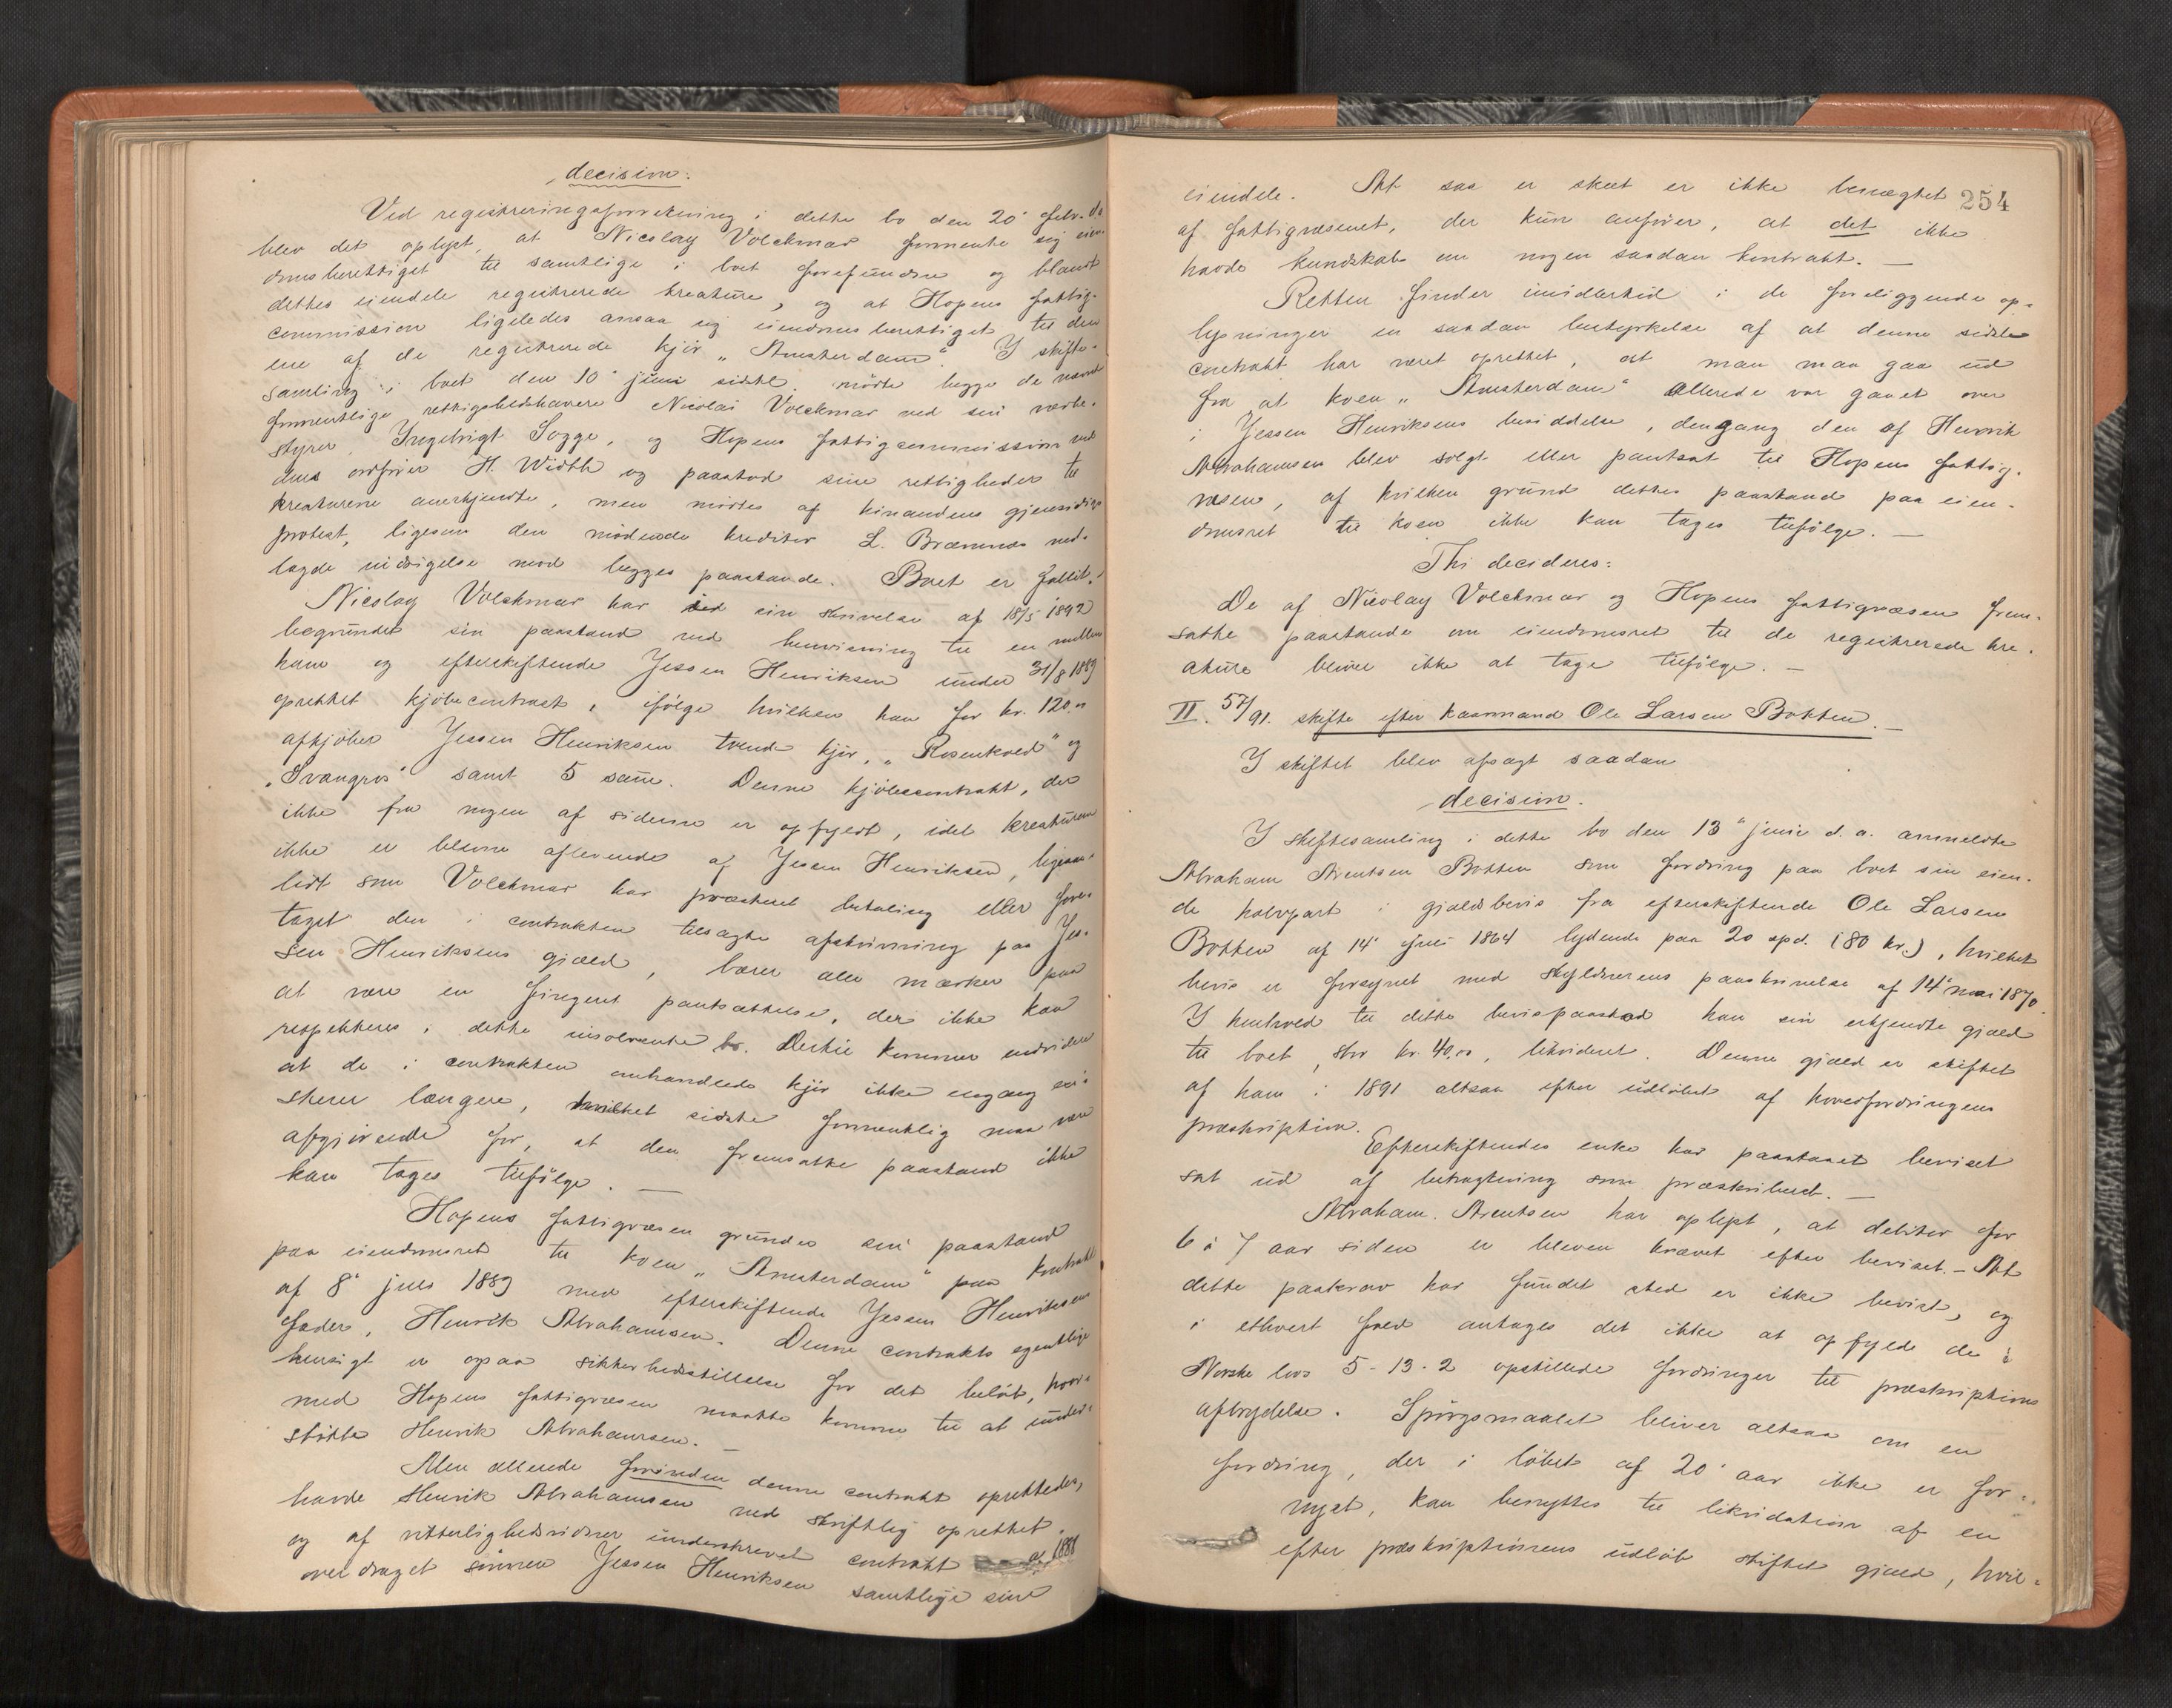 decision.
Ved registreringsforretning i dette bo den 20' febr. d. a.
blev det oplyst, at Nicolay Volckmar formente sig eien-
domsberettiget til samtlige i boet forefundne og blandt
dettes eiendele registrerede kreature, og at Hopens fattig-
commission ligeledes ansaa sig eiendomsberettiget til den
ene af de registrerede kjør „Amsterdam“. I skifte-
samling i boet den 10' juni sidstl. mødte begge de nævnte
formentlige rettighedshavere Nicolai Volckmar ved sin værbe-
styrer Ingebrigt Sogge, og Hopens fattigcommission ved
dens ordfører H. Width og paastod sine rettigheder til
kreaturene anerkjendte, men mødtes af hinandens gjensidige
protest, ligesom den mødende kreditor L. Bræmnes ned-
lagde indsigelse mod begges paastande. Boet er fallit.
Nicolay Volckmar har ved sin skrivelse af 18/5 1892
begrundet sin paastand ved henvisning til en mellem
ham og efterskiftende Jessen Henriksen under 31/8 1889
oprettet kjøbecontrakt, ifølge hvilken han for kr. 120.00
afkjøber Jessen Henriksen tvende kjør, „Rosenkold“ og
„Svangros“ samt 5 saue. Denne kjøbecontrakt, der
ikke fra nogen af siderne er opfyldt, idet kreaturene
ikke er blevne afleverede af Jessen Henriksen, ligesaa-
lidt som Volckmar har præsteret betaling eller fore-
taget den i contrakten tilsagte afskrivning paa Jes-
sen Henriksens gjæld, bærer alle mærker paa
at være en fingeret pantsættelse, der ikke kan
respekteres i dette insolvente bo. Dertil kommer endvidere
at de i contrakten omhandlede kjør ikke engang exi-
sterer længere, hvilket sidste formentlig maa være
afgjørende for, at den fremsatte paastand ikke
kan tages tilfølge. —
Hopens fattigvæsen grunder sin paastand
paa eiendomsret til koen „Amsterdam“ paa kontrakt
af 8' juli 1889 med efterskiftende Jessen Henriksens
fader, Henrik Abrahamsen. Denne contrakts egentlige
hensigt er ogsaa sikkerhedsstillelse for det beløb, hvor-
med Hopens fattigvæsen maatte komme til at under-
støtte Henrik Abrahamsen. —
Men allerede forinden denne contrakt oprettedes,
havde Henrik Abrahamsen ved skriftlig oprettet
og af vitterlighedsvidner underskrevet contrakt af 1888
overdraget sønnen Jessen Henriksen samtlige sine
254
eiendele. At saa er skeet er ikke benægtet
af fattigvæsenet, der kun anfører, at det ikke
havde kundskab om nogen saadan kontrakt. —
Retten finder imidlertid i de foreliggende op-
lysninger en saadan bestyrkelse af at denne sidste
contrakt har været oprettet, at man maa gaa ud
fra at koen „Amsterdam“ allerede var gaaet over
i Jessen Henriksens besiddelse, dengang den af Henrik
Abrahamsen blev solgt eller pantsat til Hopens fattig-
væsen, af hvilken grund dettes paastand paa eien-
domsret til koen ikke kan tages tilfølge. —
Thi decideres:
De af Nicolay Volckmar og Hopens fattigvæsen frem-
satte paastande om eiendomsret til de registrerede kre-
ature bliver ikke at tage tilfølge. —
II. 57/91. skifte efter kaarmand Ole Larsen Botten. —
I skiftet blev afsagt saadan
decision.
I skiftesamling i dette bo den 13' juni d. a. anmeldte
Abraham Arentsen Botten som fordring paa boet sin eien-
de halvpart i gjældsbevis fra efterskiftende Ole Larsen
Botten af 14' juli 1864 lydende paa 20 spd. (80 kr.), hvilket
bevis er forsynet med skyldnerens paaskrivelse af 14' mai 1870.
I henhold til dette bevis paastod han sin erkjendte gjæld
til boet, stor kr. 40.00, likvideret. Denne gjæld er stiftet
af ham i 1891 altsaa efter udløbet af hovedfordringens
præskription.
Efterskiftendes enke har paastaaet beviset
sat ud af betragtning som præskriberet. —
Abraham Arentsen har oplyst, at debitor for
6 à 7 aar siden er bleven krævet efter beviset. — At
dette paakrav har fundet sted er ikke bevist, og
i ethvert fald antages det ikke at opfylde de i
Norske lovs 5-13-2 opstillede fordringer til præskriptions
afbrydelse. Spørgsmaalet bliver altsaa om en
fordring, der i løbet af 20' aar ikke er for-
nyet, kan benyttes til likvidation af en
efter præskriptionens udløb stiftet gjæld, hvil-